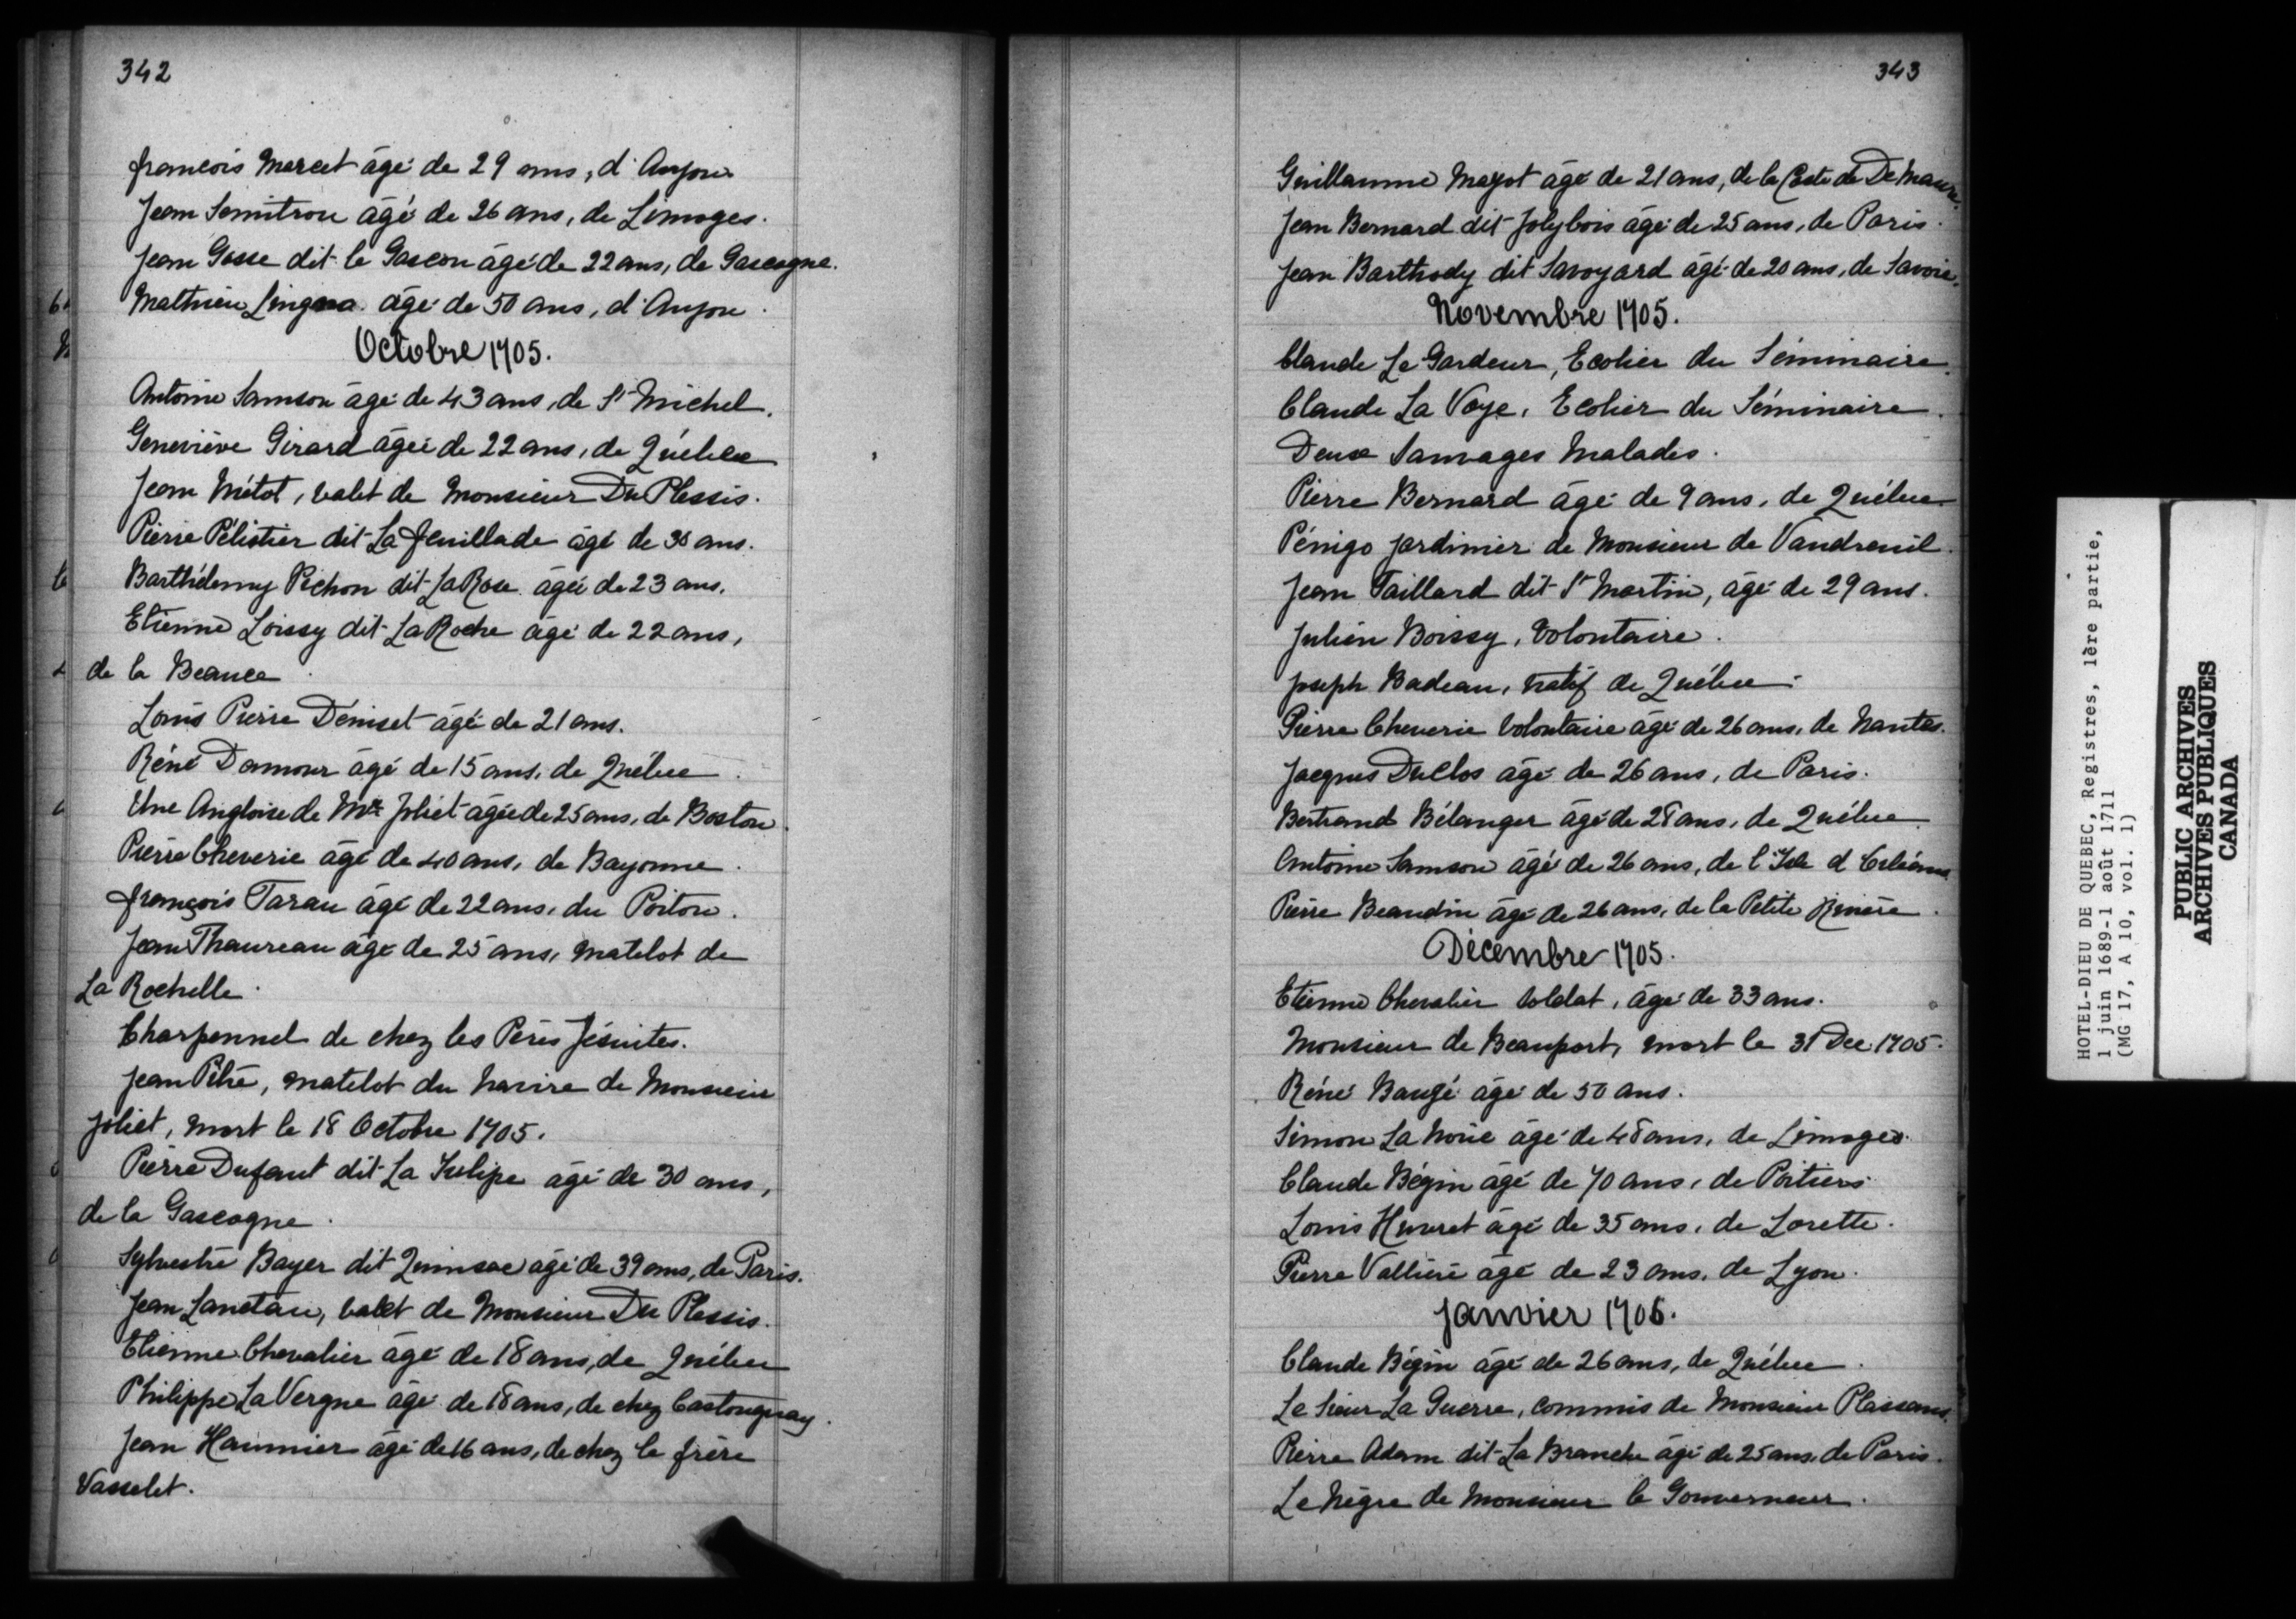 342
françois Marcet âgé de 29 ans, d'Anjou
Jean Semitrou âgé de 26 ans, de Limoges.
Jean Gosse dit le Gascon âgé de 22 ans, de Gascogne.
Mathieu âgé de 50 ans, d'Anjou.
Octobre 1705.
Antoine Samson âgé de 43 ans, de St Michel.
Geneviève Girard âgée de 22 ans, de Québec
Jean Métot, valet de Monsieur Du Plessis.
Pierre Pélistier dit La feuillade âgé de ans.
Barthélemy Pichon dit La Rose âgé de 23 ans.
Etienne Loissy dit La Roche âgé de 22 ans,
de la Beauce.
Louis Pierre Déniset âgé de 21 ans.
Réné Damour âgé de 15 ans, de Québec.
Une Angloise de Mr Joliet âgée de 25 ans, de Boston.
Pierre Cheverie âgé de 40 ans, de Bayonne.
françois Tarau âgé de 22 ans, du Poitou.
Jean Thaureau âgé de 25 ans, matelot de
La Rochelle.
Charpennel de chez les Pères Jésuites.
Jean Pitré, matelot du navire de Monsieur
Joliet, mort le 18 Octobre 1705.
Pierre Dufaut dit La Tulipe âgé de 30 ans,
de la Gascogne.
Sylvestre Bayer dit Quinsac âgé de 39 ans, de Paris.
Jean Lanctau, valet de Monsieur Du Plessis.
Etienne Chevalier âgé de 18 ans, de Québec
Philippe La Vergne âgé de 18 ans, de chez Castonguay.
Jean Haumier âgé de 16 ans, de chez le frère
Vasselet.
343
Guillaume Mayot âgé de 21 ans, de la Coste de De Maure.
Jean Bernard dit Jolybois âgé de 25 ans, de Paris.
Jean Barthody dit Savoyard âgé de 20 ans, de Savoie.
Novembre 1705.
Claude Le Gardeur, Ecolier du Séminaire.
Claude La Voye, Ecolier du Séminaire.
Deux Sauvages Malades.
Pierre Bernard âgé de 9 ans, de Québec.
Pénigo jardinier de Monsieur de Vaudreuil.
Jean Taillard dit St Martin, âgé de 29 ans.
Julien Boissy, Volontaire.
Joseph Badeau, natif de Québec.
Pierre Cheverie Volontaire âgé de 26 ans, de Nantes.
Jacques Duclos âgé de 26 ans, de Paris.
Bertrand Bélanger âgé de 28 ans, de Québec.
Antoine Samson âgé de 26 ans, de l'Isle d'Orléans
Pierre Beaudin âgé de 26 ans, de la Petite Rivière.
Décembre 1705.
Etienne Chevalier Soldat, âgé de 33 ans.
Monsieur de Beauport, mort le 31 Dec. 1705.
Réné Baugé âgé de 50 ans.
Simon La Noüe âgé de 48 ans, de Limoges.
Claude Bégin âgé de 70 ans, de Poitiers.
Louis Huvret âgé de 35 ans, de Lorette.
Pierre Vallière âgé de 23 ans, de Lyon.
Janvier 1706.
Claude Bégin âgé de 26 ans, de Québec.
Le Sieur La Guerre, commis de Monsieur Plassans.
Pierre Adam dit La Branche âgé de 25 ans, de Paris.
Le Nègre de Monsieur le Gouverneur.
HOTEL-DIEU DE QUEBEC, Registres, 1ère partie,
1 juin 1689-1 août 1711
(MG 17, A 10, vol. 1)
PUBLIC ARCHIVES
ARCHIVES PUBLIQUES
CANADA